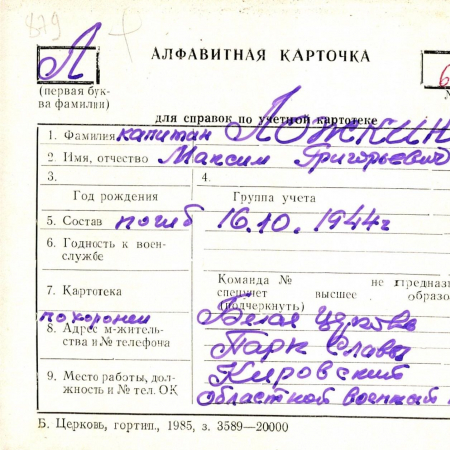 879
Л
АЛФАВИТНАЯ КАРТОЧКА
6
(первая бук-
ва фамилии)
для справок по учетной картотеке
1. Фамилия капитан ЛОЖКИН
2. Имя, отчество Максим Григорьевич
3. 4.
Год рождения Группа учета
5. Состав погиб 16.10.1944г
6. Годность к воен-
службе
7. Картотека Команда № не предназ
спецучет высшее образо
(подчеркнуть)
похоронен Белая Церковь
8. Адрес м-житель-
ства и № телефона Парк Славы
9. Место работы, дол-
жность и № тел. ОК Кировский
областной военный
Б. Церковь, гортип., 1985, з. 3589—20000